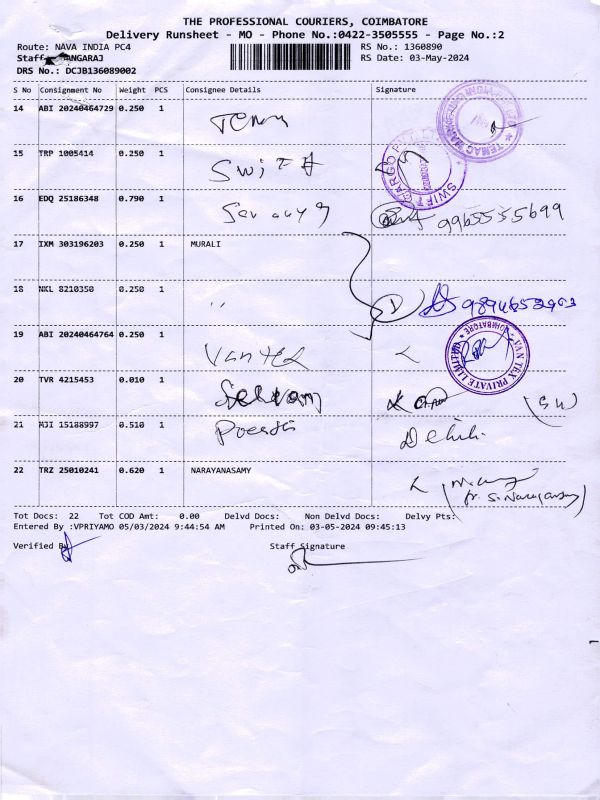 THE PROFESSIONAL COURIERS, COIMBATORE
Delivery Runsheet - MO - Phone No.:0422-3505555 - Page No.:2
Route: NAVA INDIA PC4 RS No.: 1360890
Staff ANGARAJ RS Date: 03-May-2024
DRS No.: DCJB136089002
S No Consignment No Weight PCS Consignee Details Signature
14 ABI 20240464729 0.250 1
15 TRP 1005414 0.250 1 Swift
16 EDQ 25186348 0.790 1 9965555699
17 IXM 303196203 0.250 1 MURALI
18 NKL 8210350 0.250 1 ,,
19 ABI 20240464764 0.250 1 Vantex
VAN TEX PRIVATE LIMITED
COIMBATORE
20 TVR 4215453 0.010 1 Selvam
21 MJI 15188997 0.510 1
22 TRZ 25010241 0.620 1 NARAYANASAMY
Tot Docs: 22 Tot COD Amt: 0.00 Delvd Docs: Non Delvd Docs: Delvy Pts:
Entered By :VPRIYAMO 05/03/2024 9:44:54 AM Printed On: 03-05-2024 09:45:13
Verified By Staff Signature